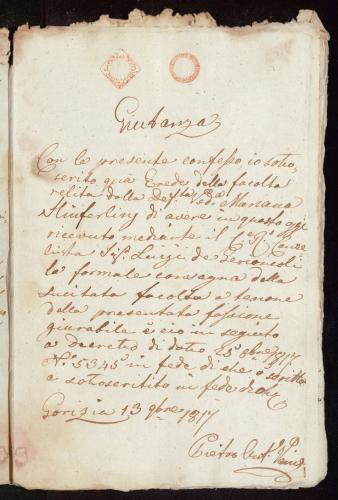 Giutanza
Con la presente confesso io sotto,
scrito quà Erede della facolta
relita dalla Def.ta Ved. Mariana
di avere in questo oggi
ricevuto mediante il
lista Sig. Luigi de
la formale consegna della
sucitata facolta a tenore
della presentata fassione
giurabile e ciò in seguito
a decreto di dato 25 9bre 1817
N.o 5345 in fede di che ò scritto
e sotoscritto in fede di che
Gorizia 13 9bre 1817
Pietro Ant.